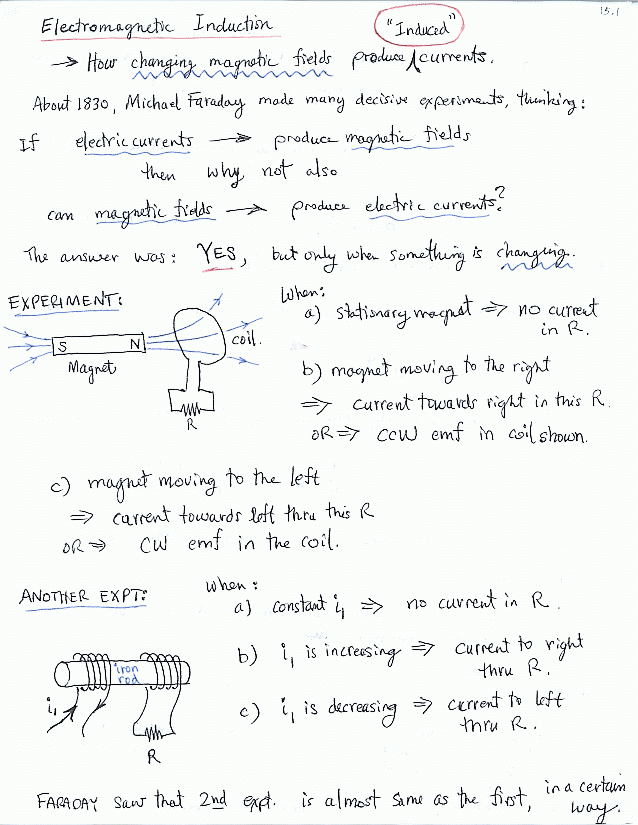 15.1
Electromagnetic Induction "Induced"
→ How changing magnetic fields produce ∧ currents.
About 1830, Michael Faraday made many decisive experiments, thinking:
If electric currents → produce magnetic fields
then why not also
can magnetic fields → produce electric currents?
The answer was: YES, but only when something is changing.
EXPERIMENT:
S N
Magnet
coil.
R
When:
a) stationary magnet ⇒ no current
in R.
b) magnet moving to the right
⇒ current towards right in this R.
OR ⇒ CCW emf in coil shown.
c) magnet moving to the left
⇒ current towards left thru this R
OR ⇒ CW emf in the coil.
ANOTHER EXPT:
iron
rod
i₁
R
When:
a) constant i₁ ⇒ no current in R.
b) i₁ is increasing ⇒ current to right
thru R.
c) i₁ is decreasing ⇒ current to left
thru R.
FARADAY saw that 2nd expt. is almost same as the first, in a certain
way.